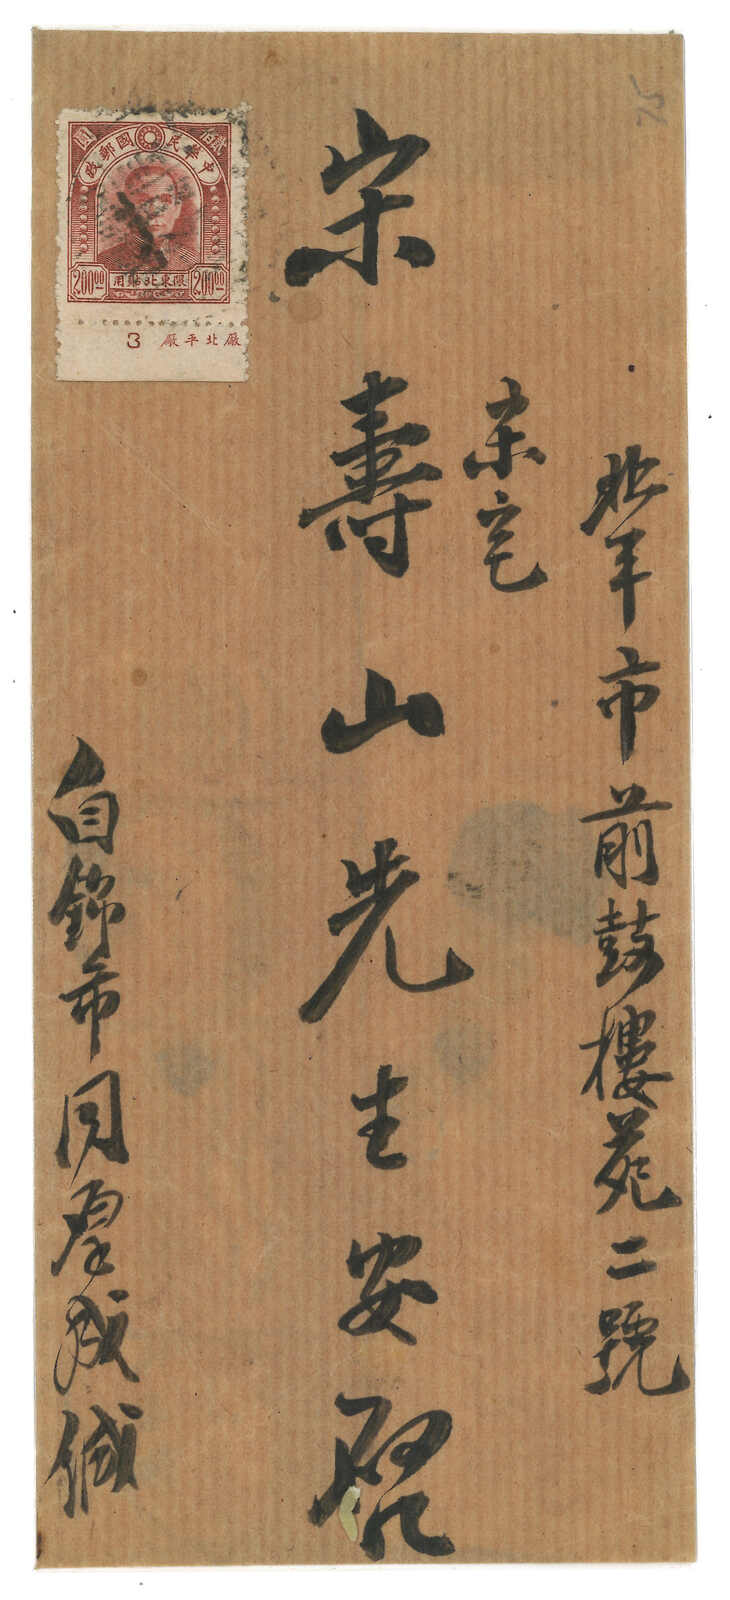 北平市前鼓樓苑二號
宋宅
宋壽山先生安啓
自錦市同厚成緘
圓 貳佰
中華民國郵政
200⁰⁰ 限東北貼用 200⁰⁰
廠北平廠 3